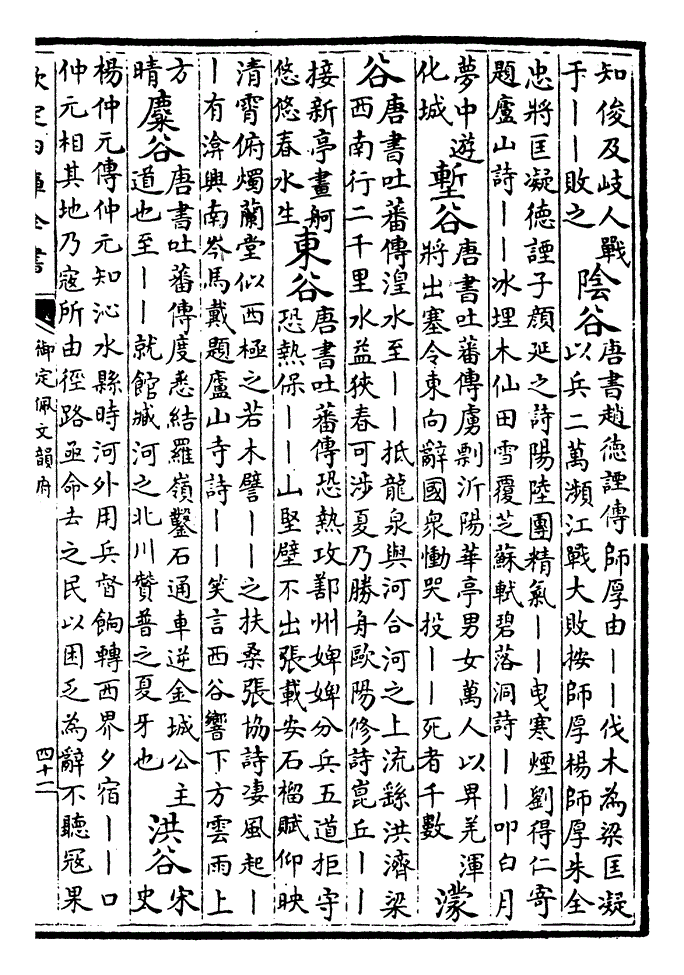 知俊及岐人戰
于丨丨敗之
陰谷
唐書趙德諲傳師厚由丨丨伐木為梁匡凝
以兵二萬瀕江戰大敗按師厚楊師厚朱全
忠將匡凝德諲子顔延之詩陽陸團精氣丨丨曳寒煙劉得仁寄
題廬山詩丨丨冰埋木仙田雪覆芝蘇軾碧落洞詩丨丨叩白月
夢中遊
化城
塹谷
唐書吐蕃傳虜剽沂陽華亭男女萬人以畀羌渾
將出塞令東向辭國衆慟哭投丨丨死者千數
濛
谷
唐書吐蕃傳湟水至丨丨抵龍泉與河合河之上流繇洪濟梁
西南行二千里水益狹春可涉夏乃勝舟歐陽修詩崑丘丨丨
接新亭畫舸
悠悠春水生
東谷
唐書吐蕃傳恐熱攻鄯州婢婢分兵五道拒守
恐熱保丨丨山堅壁不出張載安石榴賦仰映
清霄俯燭蘭堂似西極之若木譬丨丨之扶桑張協詩凄風起丨
丨有渰興南岑馬戴題廬山寺詩丨丨笑言西谷響下方雲雨上
方
晴
麋谷
唐書吐蕃傳度悉結羅嶺鑿石通車逆金城公主
道也至丨丨就館臧河之北川贊普之夏牙也
洪谷
宋
史
楊仲元傳仲元知沁水縣時河外用兵督餉轉西界夕宿丨丨口
仲元相其地乃寇所由徑路亟命去之民以困乏為辭不聽寇果
欽定四庫全書
御定佩文韻府
四十二